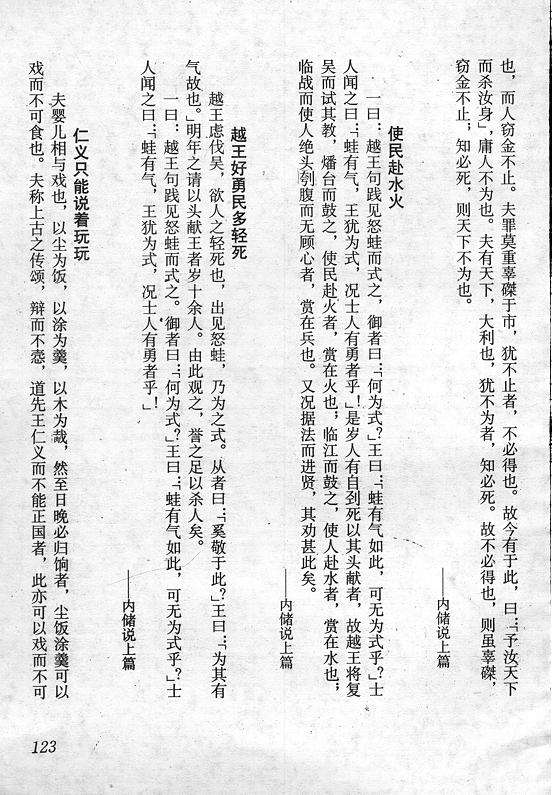 也，而人窃金不止。夫罪莫重辜磔于市，犹不止者，不必得也。故今有于此，曰：「予汝天下
而杀汝身」，庸人不为也。夫有天下，大利也，犹不为者，知必死。故不必得也，则虽辜磔，
窃金不止；知必死，则天下不为也。
——内储说上篇
使民赴水火
一曰：越王句践见怒蛙而式之，御者曰：「何为式？」王曰：「蛙有气如此，可无为式乎？」士
人闻之曰：「蛙有气，王犹为式，况士人有勇者乎！」是岁人有自刭死以其头献者，故越王将复
吴而试其教，燔台而鼓之，使民赴火者，赏在火也；临江而鼓之，使人赴水者，赏在水也；
临战而使人绝头刳腹而无顾心者，赏在兵也。又况据法而进贤，其劝甚此矣。
——内储说上篇
越王好勇民多轻死
越王虑伐吴，欲人之轻死也，出见怒蛙，乃为之式。从者曰：「奚敬于此？」王曰：「为其有
气故也。」明年之请以头献王者岁十余人。由此观之，誉之足以杀人矣。
一曰：越王句践见怒蛙而式之。御者曰：「何为式？」王曰：「蛙有气如此，可无为式乎？」士
人闻之曰：「蛙有气，王犹为式，况士人有勇者乎！」
——内储说上篇
仁义只能说着玩玩
夫婴儿相与戏也，以尘为饭，以涂为羹，以木为胾，然至日晚必归饷者，尘饭涂羹可以
戏而不可食也。夫称上古之传颂，辩而不悫，道先王仁义而不能正国者，此亦可以戏而不可
123